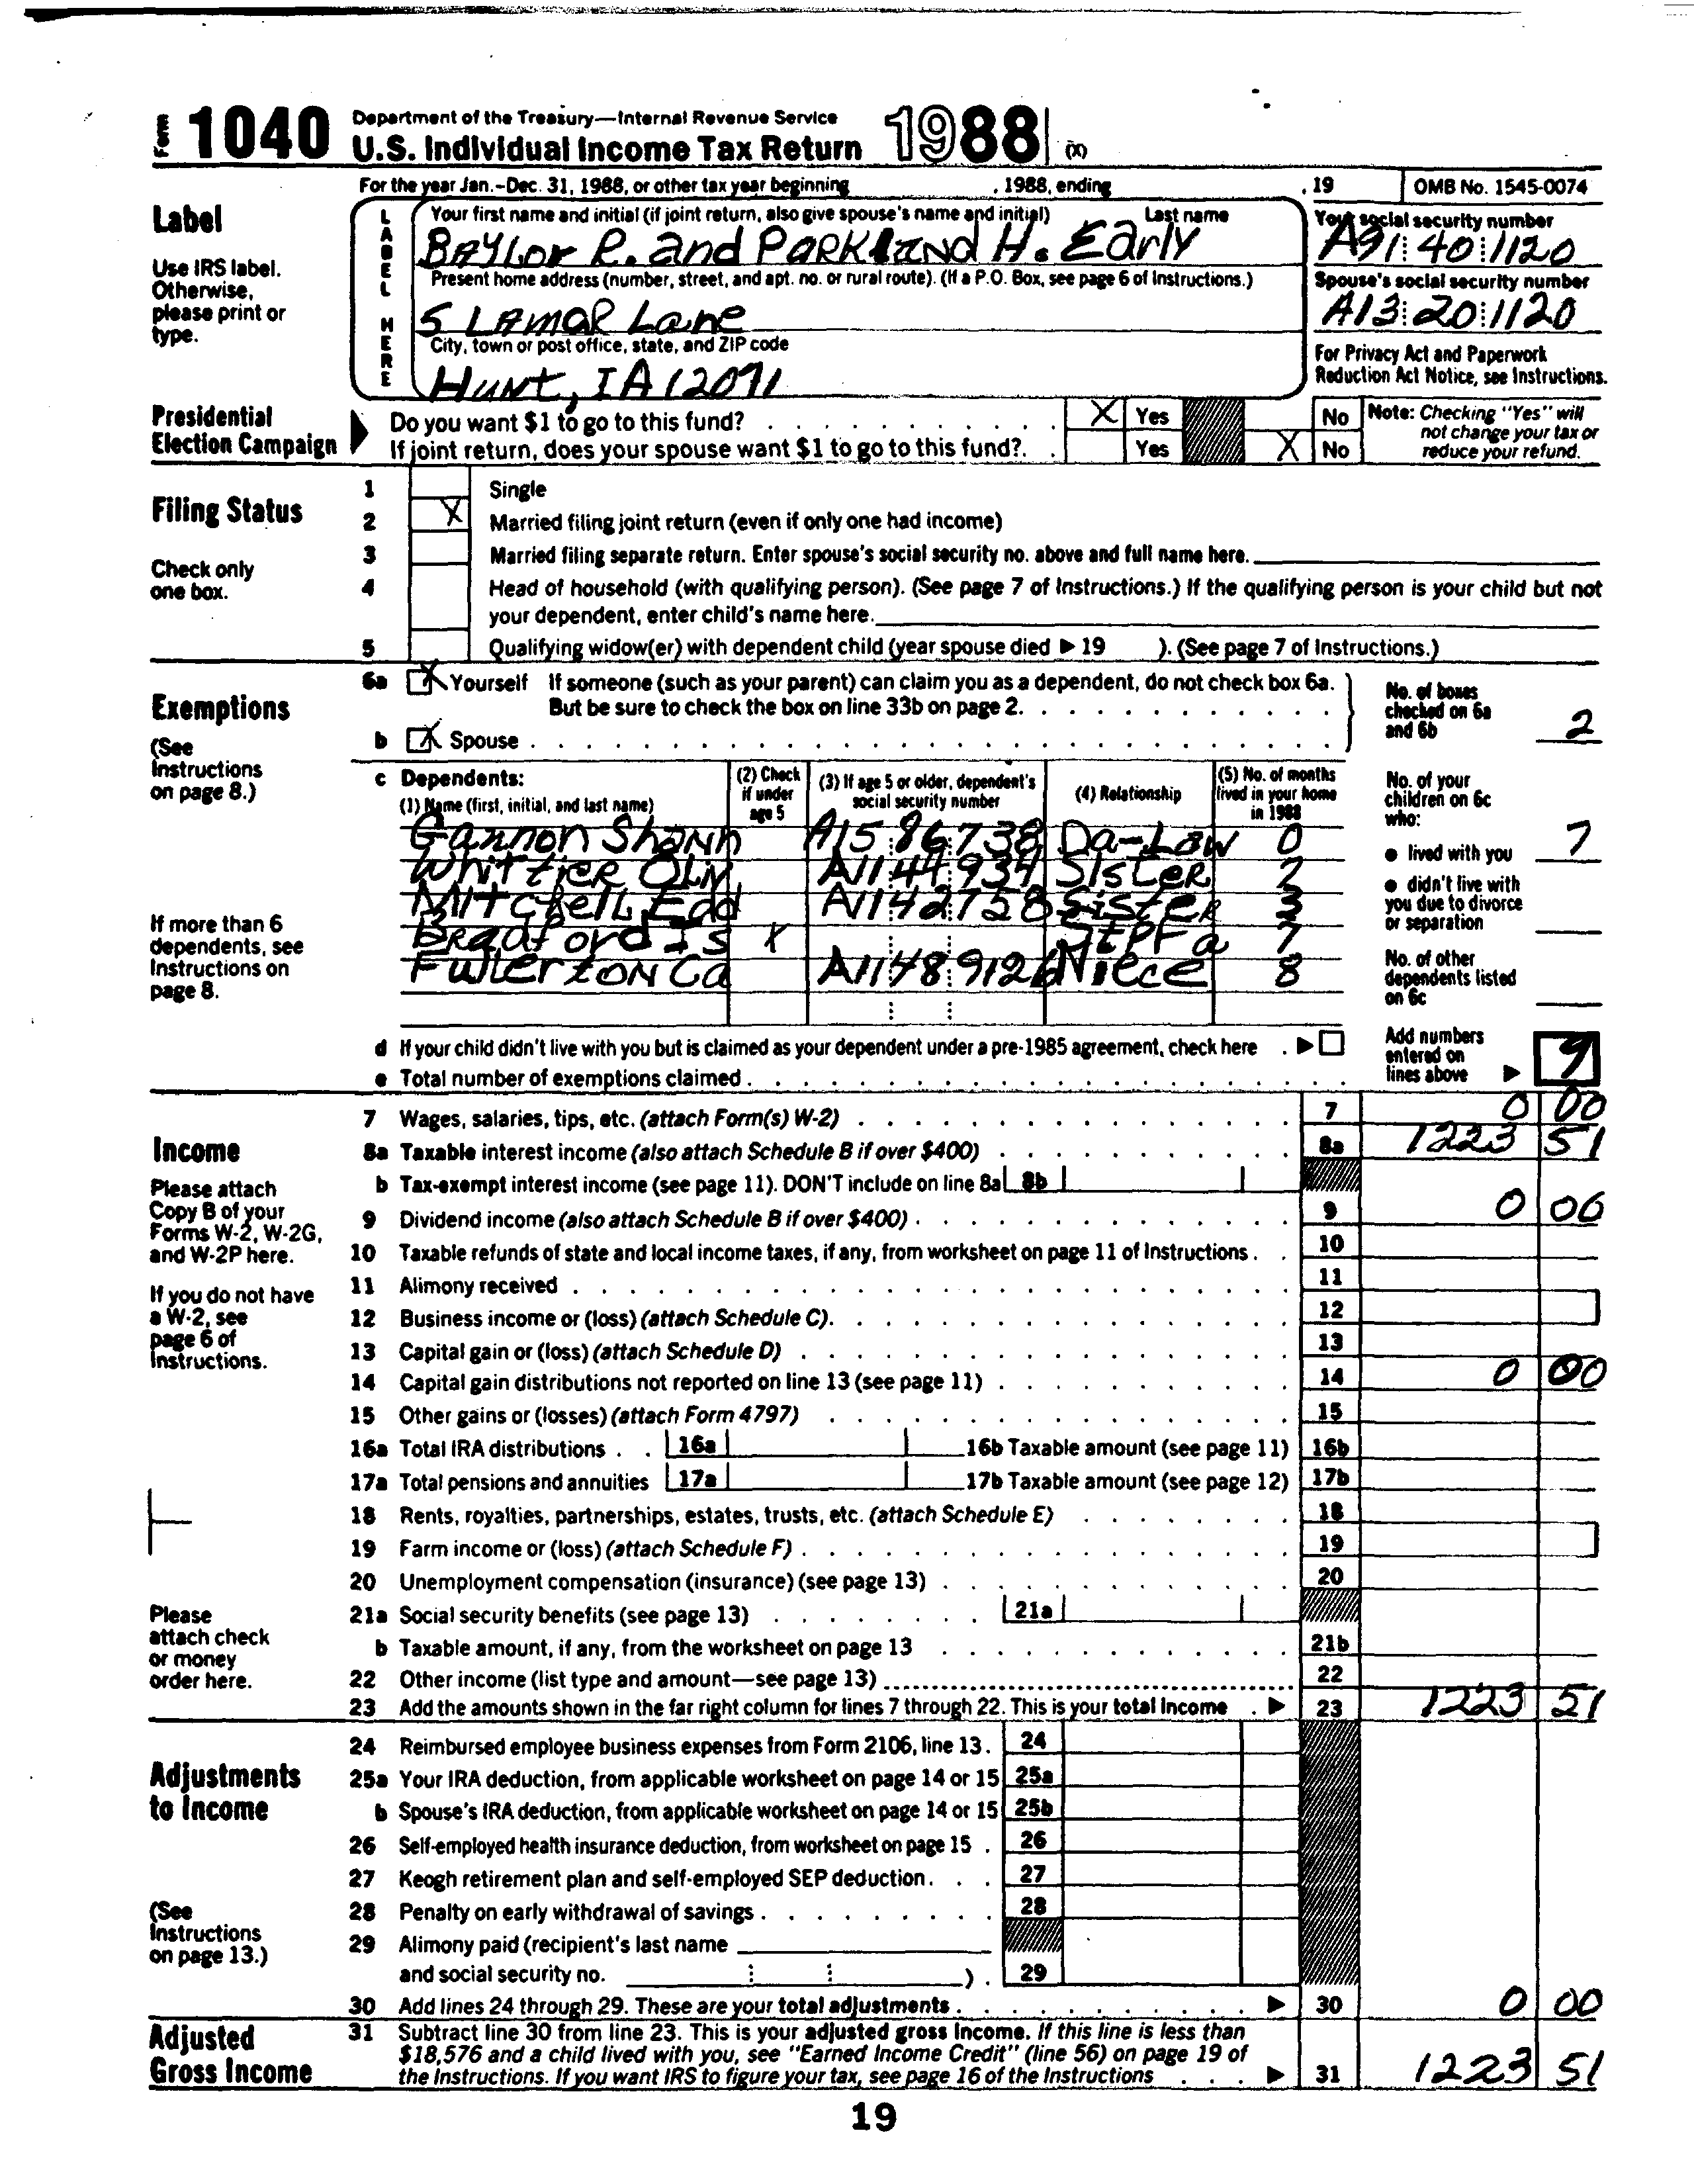 Form 1040 Department of the Treasury—Internal Revenue Service
U.S. Individual Income Tax Return 1988 (X)
For the year Jan.-Dec. 31, 1988, or other tax year beginning , 1988, ending , 19 OMB No. 1545-0074
Label
Use IRS label.
Otherwise,
please print or
type.
LABEL HERE
Your first name and initial (if joint return, also give spouse's name and initial) Last name
BAYLOR R. and PARKLAND H. Early
Your social security number
A31 40 1120
Present home address (number, street, and apt. no. or rural route). (If a P.O. Box, see page 6 of Instructions.)
5 LAMAR Lane
Spouse's social security number
A13 20 1120
City, town or post office, state, and ZIP code
HUNT, IA 12071
For Privacy Act and Paperwork
Reduction Act Notice, see Instructions.
Presidential
Election Campaign
Do you want $1 to go to this fund? X Yes No
If joint return, does your spouse want $1 to go to this fund? Yes X No
Note: Checking "Yes" will
not change your tax or
reduce your refund.
Filing Status
Check only
one box.
1 Single
2 X Married filing joint return (even if only one had income)
3 Married filing separate return. Enter spouse's social security no. above and full name here.
4 Head of household (with qualifying person). (See page 7 of Instructions.) If the qualifying person is your child but not
your dependent, enter child's name here.
5 Qualifying widow(er) with dependent child (year spouse died ▶ 19 ). (See page 7 of Instructions.)
Exemptions
(See
Instructions
on page 8.)
6a X Yourself If someone (such as your parent) can claim you as a dependent, do not check box 6a.
But be sure to check the box on line 33b on page 2.
b X Spouse
No. of boxes
checked on 6a
and 6b 2
c Dependents:
(1) Name (first, initial, and last name)
(2) Check
if under
age 5
(3) If age 5 or older, dependent's
social security number
(4) Relationship
(5) No. of months
lived in your home
in 1988
Gannon Shann A15 86 738 Da-Law 0
Whittier Olin A11 44 934 Sister 2
Mitchell Edd A11 42 758 Sister 3
Bradford Is X StPFa 7
Fullerton Ca A11 48 9126 Niece 8
If more than 6
dependents, see
Instructions on
page 8.
No. of your
children on 6c
who:
● lived with you 7
● didn't live with
you due to divorce
or separation
No. of other
dependents listed
on 6c
d If your child didn't live with you but is claimed as your dependent under a pre-1985 agreement, check here ▶
e Total number of exemptions claimed
Add numbers
entered on
lines above ▶ 9
Income
Please attach
Copy B of your
Forms W-2, W-2G,
and W-2P here.
If you do not have
a W-2, see
page 6 of
Instructions.
Please
attach check
or money
order here.
7 Wages, salaries, tips, etc. (attach Form(s) W-2) 7 0 00
8a Taxable interest income (also attach Schedule B if over $400) 8a 1223 51
b Tax-exempt interest income (see page 11). DON'T include on line 8a 8b
9 Dividend income (also attach Schedule B if over $400) 9 0 00
10 Taxable refunds of state and local income taxes, if any, from worksheet on page 11 of Instructions. 10
11 Alimony received 11
12 Business income or (loss) (attach Schedule C). 12
13 Capital gain or (loss) (attach Schedule D) 13
14 Capital gain distributions not reported on line 13 (see page 11) 14 0 00
15 Other gains or (losses) (attach Form 4797) 15
16a Total IRA distributions 16a 16b Taxable amount (see page 11) 16b
17a Total pensions and annuities 17a 17b Taxable amount (see page 12) 17b
18 Rents, royalties, partnerships, estates, trusts, etc. (attach Schedule E) 18
19 Farm income or (loss) (attach Schedule F) 19
20 Unemployment compensation (insurance) (see page 13) 20
21a Social security benefits (see page 13) 21a
b Taxable amount, if any, from the worksheet on page 13 21b
22 Other income (list type and amount—see page 13) 22
23 Add the amounts shown in the far right column for lines 7 through 22. This is your total income ▶ 23 1223 51
Adjustments
to Income
(See
Instructions
on page 13.)
24 Reimbursed employee business expenses from Form 2106, line 13. 24
25a Your IRA deduction, from applicable worksheet on page 14 or 15 25a
b Spouse's IRA deduction, from applicable worksheet on page 14 or 15 25b
26 Self-employed health insurance deduction, from worksheet on page 15 26
27 Keogh retirement plan and self-employed SEP deduction 27
28 Penalty on early withdrawal of savings 28
29 Alimony paid (recipient's last name
and social security no. ) 29
30 Add lines 24 through 29. These are your total adjustments ▶ 30 0 00
Adjusted
Gross Income
31 Subtract line 30 from line 23. This is your adjusted gross income. If this line is less than
$18,576 and a child lived with you, see "Earned Income Credit" (line 56) on page 19 of
the Instructions. If you want IRS to figure your tax, see page 16 of the Instructions ▶ 31 1223 51
19